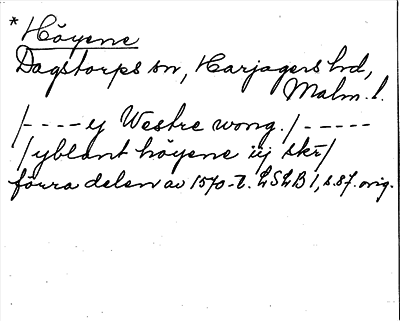 * Höyene
Dagstorps sn, Harjagers hd,
Malm. l.
/---- y Westre wong. / -----
/ yblant höyene iij skr /
förra delen av 1570-t. LSLB 1, s. 87. orig.